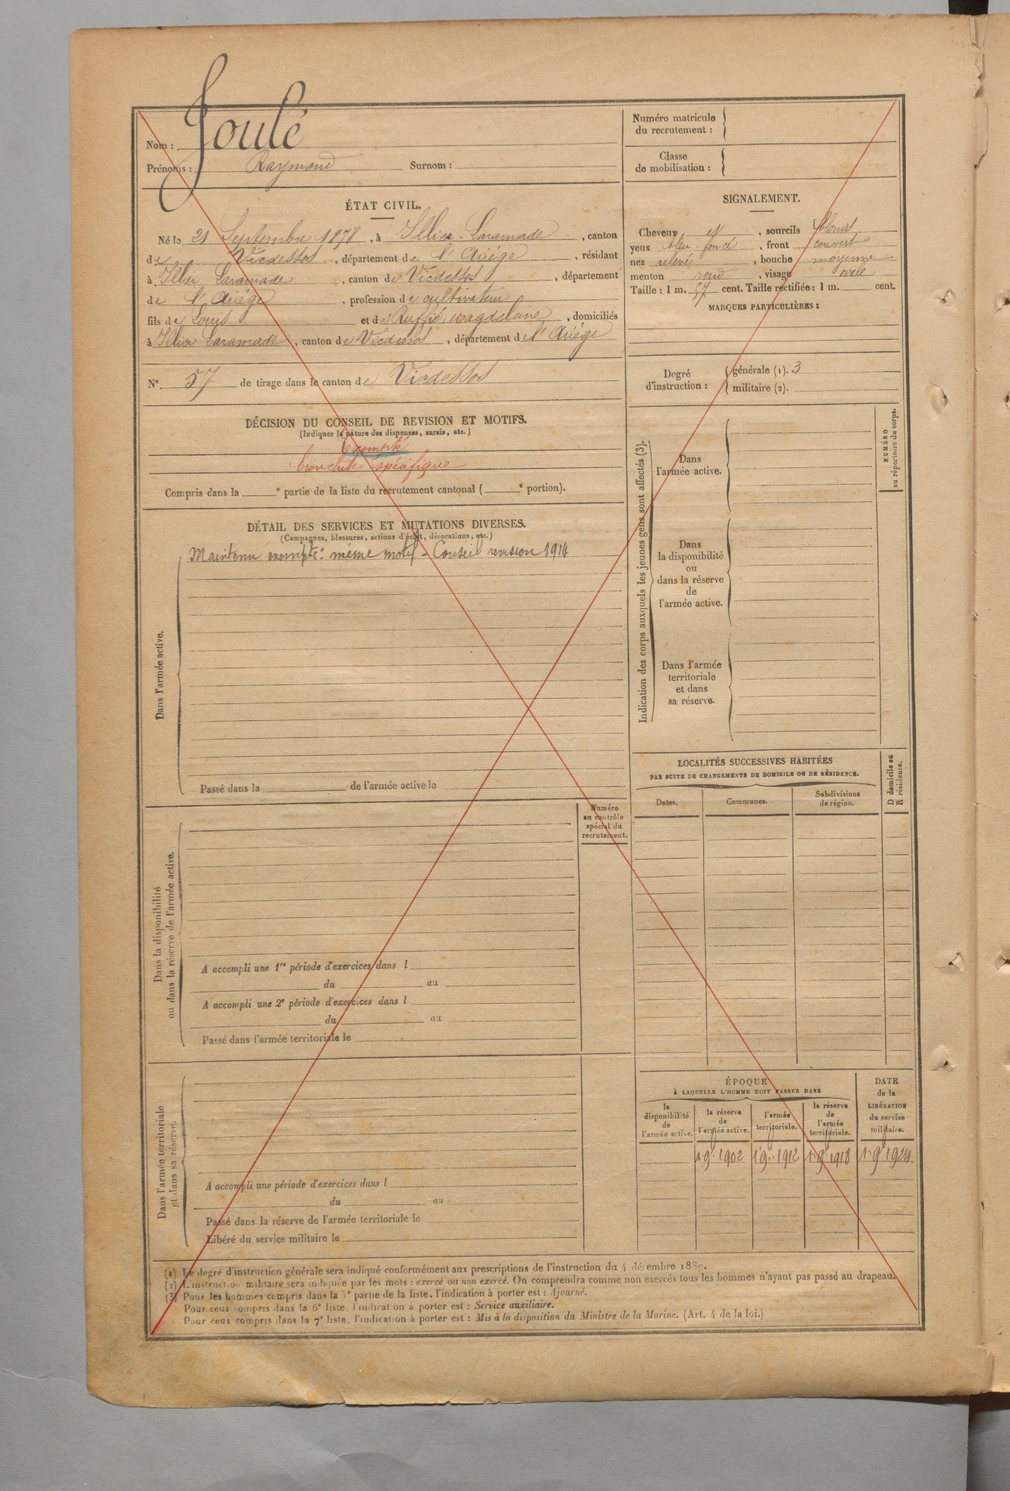 Nom : Joulé
Prénoms : Raymond Surnom :
ÉTAT CIVIL.
Né le 21 Septembre 1878, à Illier-Laramade, canton
de Vicdessos, département de l'Ariége, résidant
à Illier Laramade, canton de Vicdessos, département
de l'Ariége, profession de cultivateur
fils de Louis et de Ruffié, Magdelaine, domiciliés
à Illier Laramade, canton de Vicdessos, département de l'Ariége
N° 57 de tirage dans le canton de Vicdessos
DÉCISION DU CONSEIL DE REVISION ET MOTIFS.
(Indiquer la nature des dispenses, sursis, etc.)
Exempté
bronchite spécifique
Compris dans la e partie de la liste du recrutement cantonal ( e portion).
DÉTAIL DES SERVICES ET MUTATIONS DIVERSES.
(Campagnes, blessures, actions d'éclat, décorations, etc.)
Maintenu exempté : même motif - Conseil revision 1914
Dans l'armée active.
Passé dans la de l'armée active le
Dans la disponibilité
ou dans la réserve de l'armée active.
Numéro
au contrôle
spécial du
recrutement.
A accompli une 1re période d'exercices dans l
du au
A accompli une 2e période d'exercices dans l
du au
Passé dans l'armée territoriale le
Dans l'armée territoriale
et dans sa réserve.
A accompli une période d'exercices dans l
du au
Passé dans la réserve de l'armée territoriale le
Libéré du service militaire le
Numéro matricule
du recrutement :
Classe
de mobilisation :
SIGNALEMENT.
Cheveux et, sourcils blonds
yeux bleu foncé, front couvert
nez relevé, bouche moyenne
menton rond, visage ovale
Taille : 1 m. 57 cent. Taille rectifiée : 1 m. cent.
MARQUES PARTICULIÈRES :
Degré
d'instruction :
générale (1). 3
militaire (2).
Indication des corps auxquels les jeunes gens sont affectés (3).
Dans
l'armée active.
Dans
la disponibilité
ou
dans la réserve
de
l'armée active.
Dans l'armée
territoriale
et dans
sa réserve.
NUMÉRO
au répertoire du corps.
LOCALITÉS SUCCESSIVES HABITÉES
PAR SUITE DE CHANGEMENTS DE DOMICILE OU DE RÉSIDENCE.
Dates. Communes. Subdivisions
de région.
D domicile ou
R résidence.
ÉPOQUE
À LAQUELLE L'HOMME DOIT PASSER DANS
la
disponibilité
de
l'armée active.
la réserve
de
l'armée active.
l'armée
territoriale.
la réserve
de
l'armée
territoriale.
DATE
de la
LIBÉRATION
du service
militaire.
1 9e 1902 1 9e 1912 1 9e 1918 1 9e 1924
(1) Le degré d'instruction générale sera indiqué conformément aux prescriptions de l'instruction du 4 décembre 1889.
(2) L'instruction militaire sera indiquée par les mots : exercé ou non exercé. On comprendra comme non exercés tous les hommes n'ayant pas passé au drapeau.
(3) Pour les hommes compris dans la 5e partie de la liste, l'indication à porter est : Ajourné.
Pour ceux compris dans la 6e liste, l'indication à porter est : Service auxiliaire.
Pour ceux compris dans la 7e liste, l'indication à porter est : Mis à la disposition du Ministre de la Marine. (Art. 4 de la loi.)